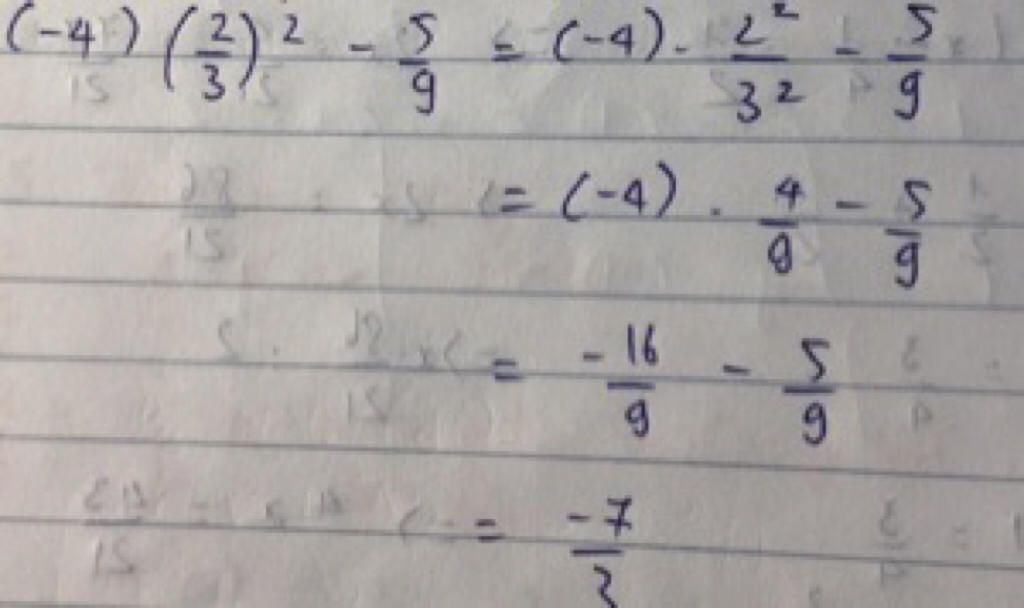 (-4) (2/3)² - 5/9 = (-4) . 2²/3² - 5/9
= (-4) . 4/9 - 5/9
= -16/9 - 5/9
= -7/3